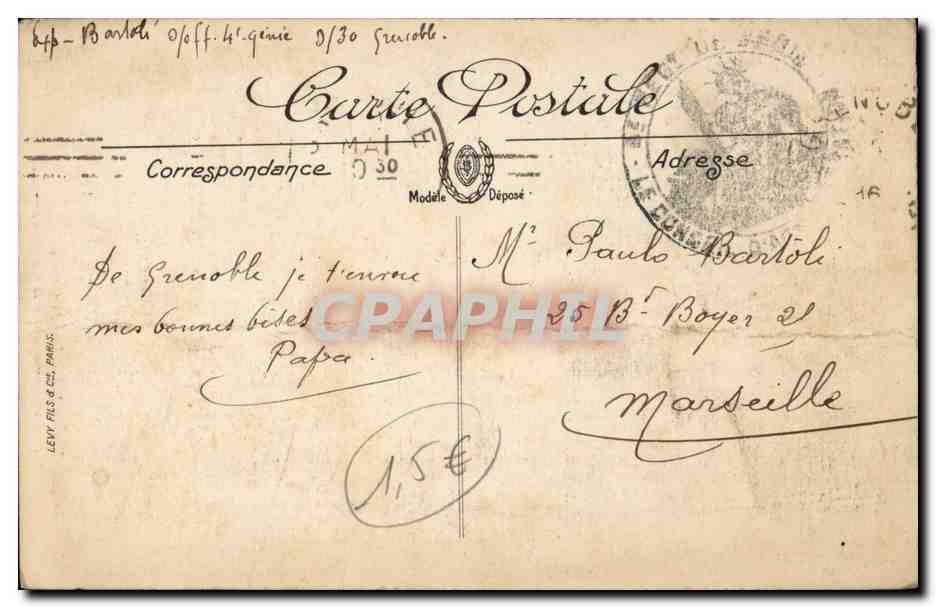 Exp - Bartoli S/off. 4e génie D/30 Grenoble.
Carte Postale
MAI
30
Correspondance
Adresse
Modèle Déposé
Mr Paulo Bartoli
De Grenoble je t'envoie
mes bonnes bises
Papa.
25 Bd Boyer 21
Marseille
CPAPHIL
LEVY FILS & Cie, PARIS.
1,5€